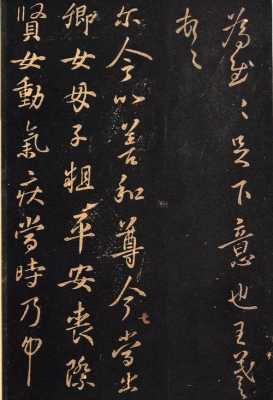 足下意也王羲之
尔今以善和尊今當出
卿女母子粗平安喪際
賢女動氣疾當時乃